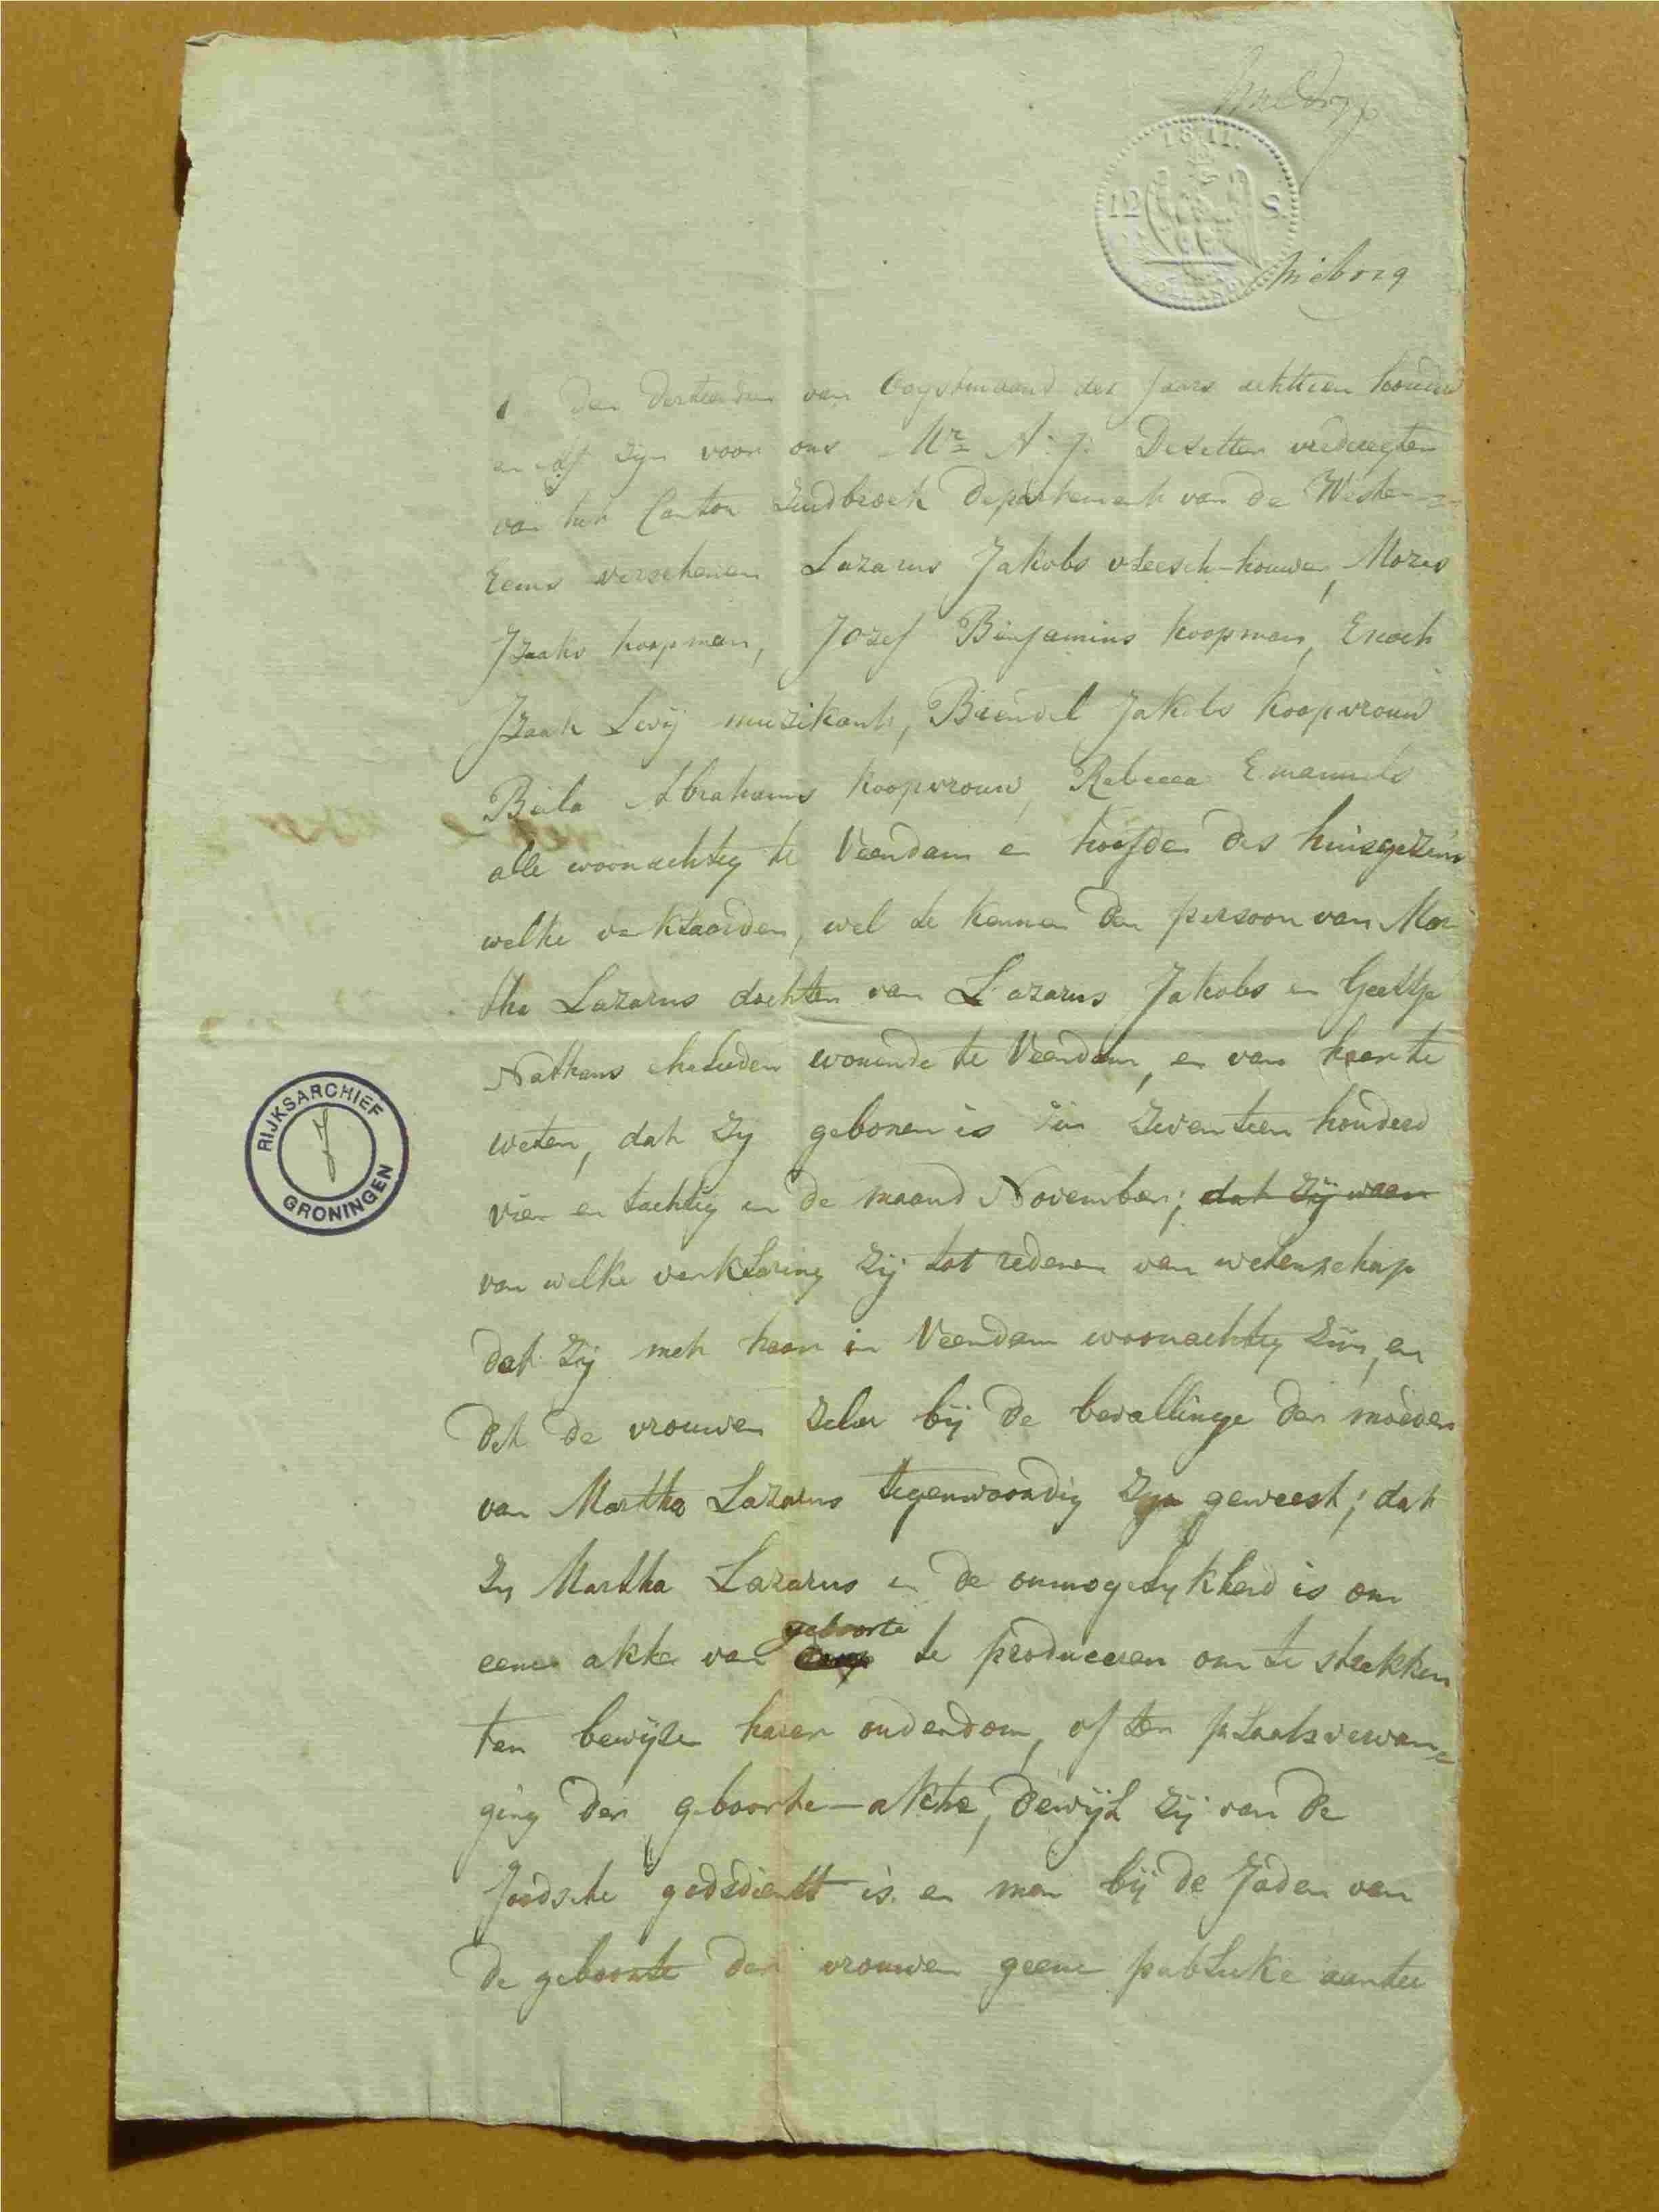 1811.
12 S.
HOLLAND
Den dertienden van Oogstmaand des Jaars achttien honder
en elf zyn voor ons Mr A: J: Desitter vrederegter
van het Canton Zuidbroek Departement van de Wester-
eems verschenen Lazarus Jakobs vleesch-houwer, Mozes
Izaaks koopman, Jozef Binjamins koopman, Enoch
Izaak Levÿ muzikant, Brendel Jakobs koopvrouw
Beila Abrahams koopvrouw, Rebecca Emanuels
alle woonachtig te Veendam en hoofden des huisgezins
welke verklaarden, wel te kennen den persoon van Mar
tha Lazarus dochter van Lazarus Jakobs en Geeltje
Nathans ehelieden wonende te Veendam, en van haar te
weten, dat zy geboren is in zeventien honderd
vier en tachtig in de maand November; dat zÿ waar
van welke verklaring zÿ tot redenen van wetenschap
dat zÿ met haar in Veendam woonachtig zÿn, en
dat de vrouwen zelve bÿ de bevallinge der moeder
van Martha Lazarus tegenwoordig zyn geweest; dat
zy Martha Lazarus in de onmogelykheid is om
geboorte
eene akte van doop te produceren om te strekken
ten bewÿze haren ouderdom, of ter plaatsvervan-
ging der geboorte-akte, dewÿl zÿ van de
Joodsche godsdienst is en men bÿ de Joden van
de geboorte der vrouwen geene publieke aantee
RIJKSARCHIEF
GRONINGEN